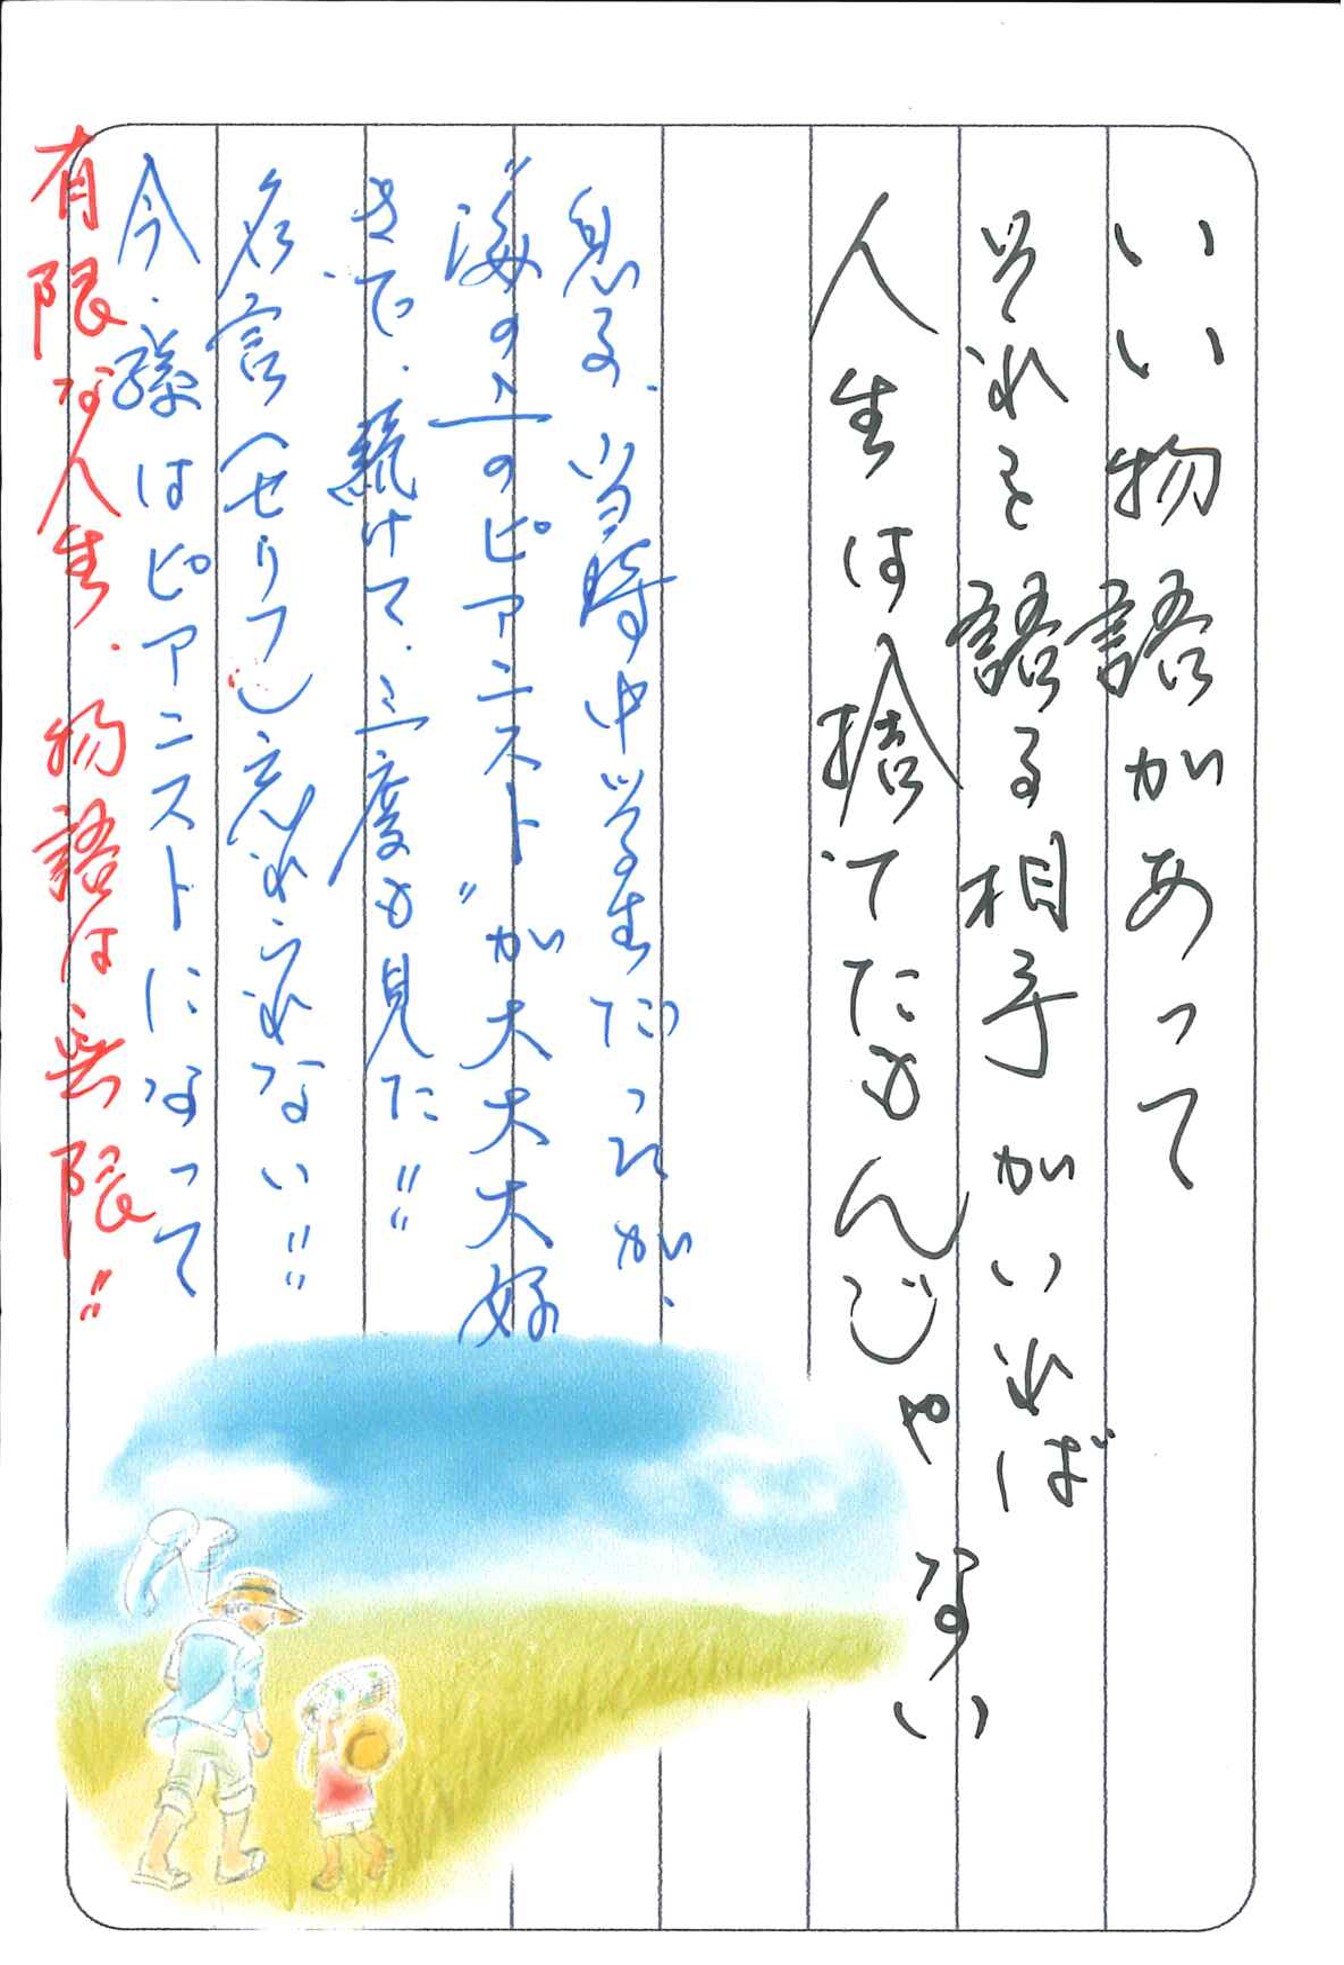 いい物語があって
それを語る相手がいれば
人生は捨てたもんじゃない
息子、当時中学生だったが、
“海の上のピアニスト”が大大大好
きで、続けて、三度も見た!!
名言(セリフ)忘れられない!!
今、孫はピアニストになって
有限な人生、物語は無限!!